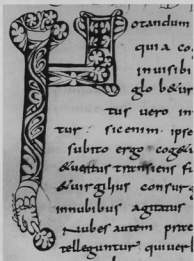 Notandum
quia co
inuisibi
glo b&ur
tus uero in
tur: sicenim ipse
subito ergo cogeu
&uentus transiens fu
&uirgilius consurg
innubibus agitatus
Nubes autem prae
telleguntur quiuerb